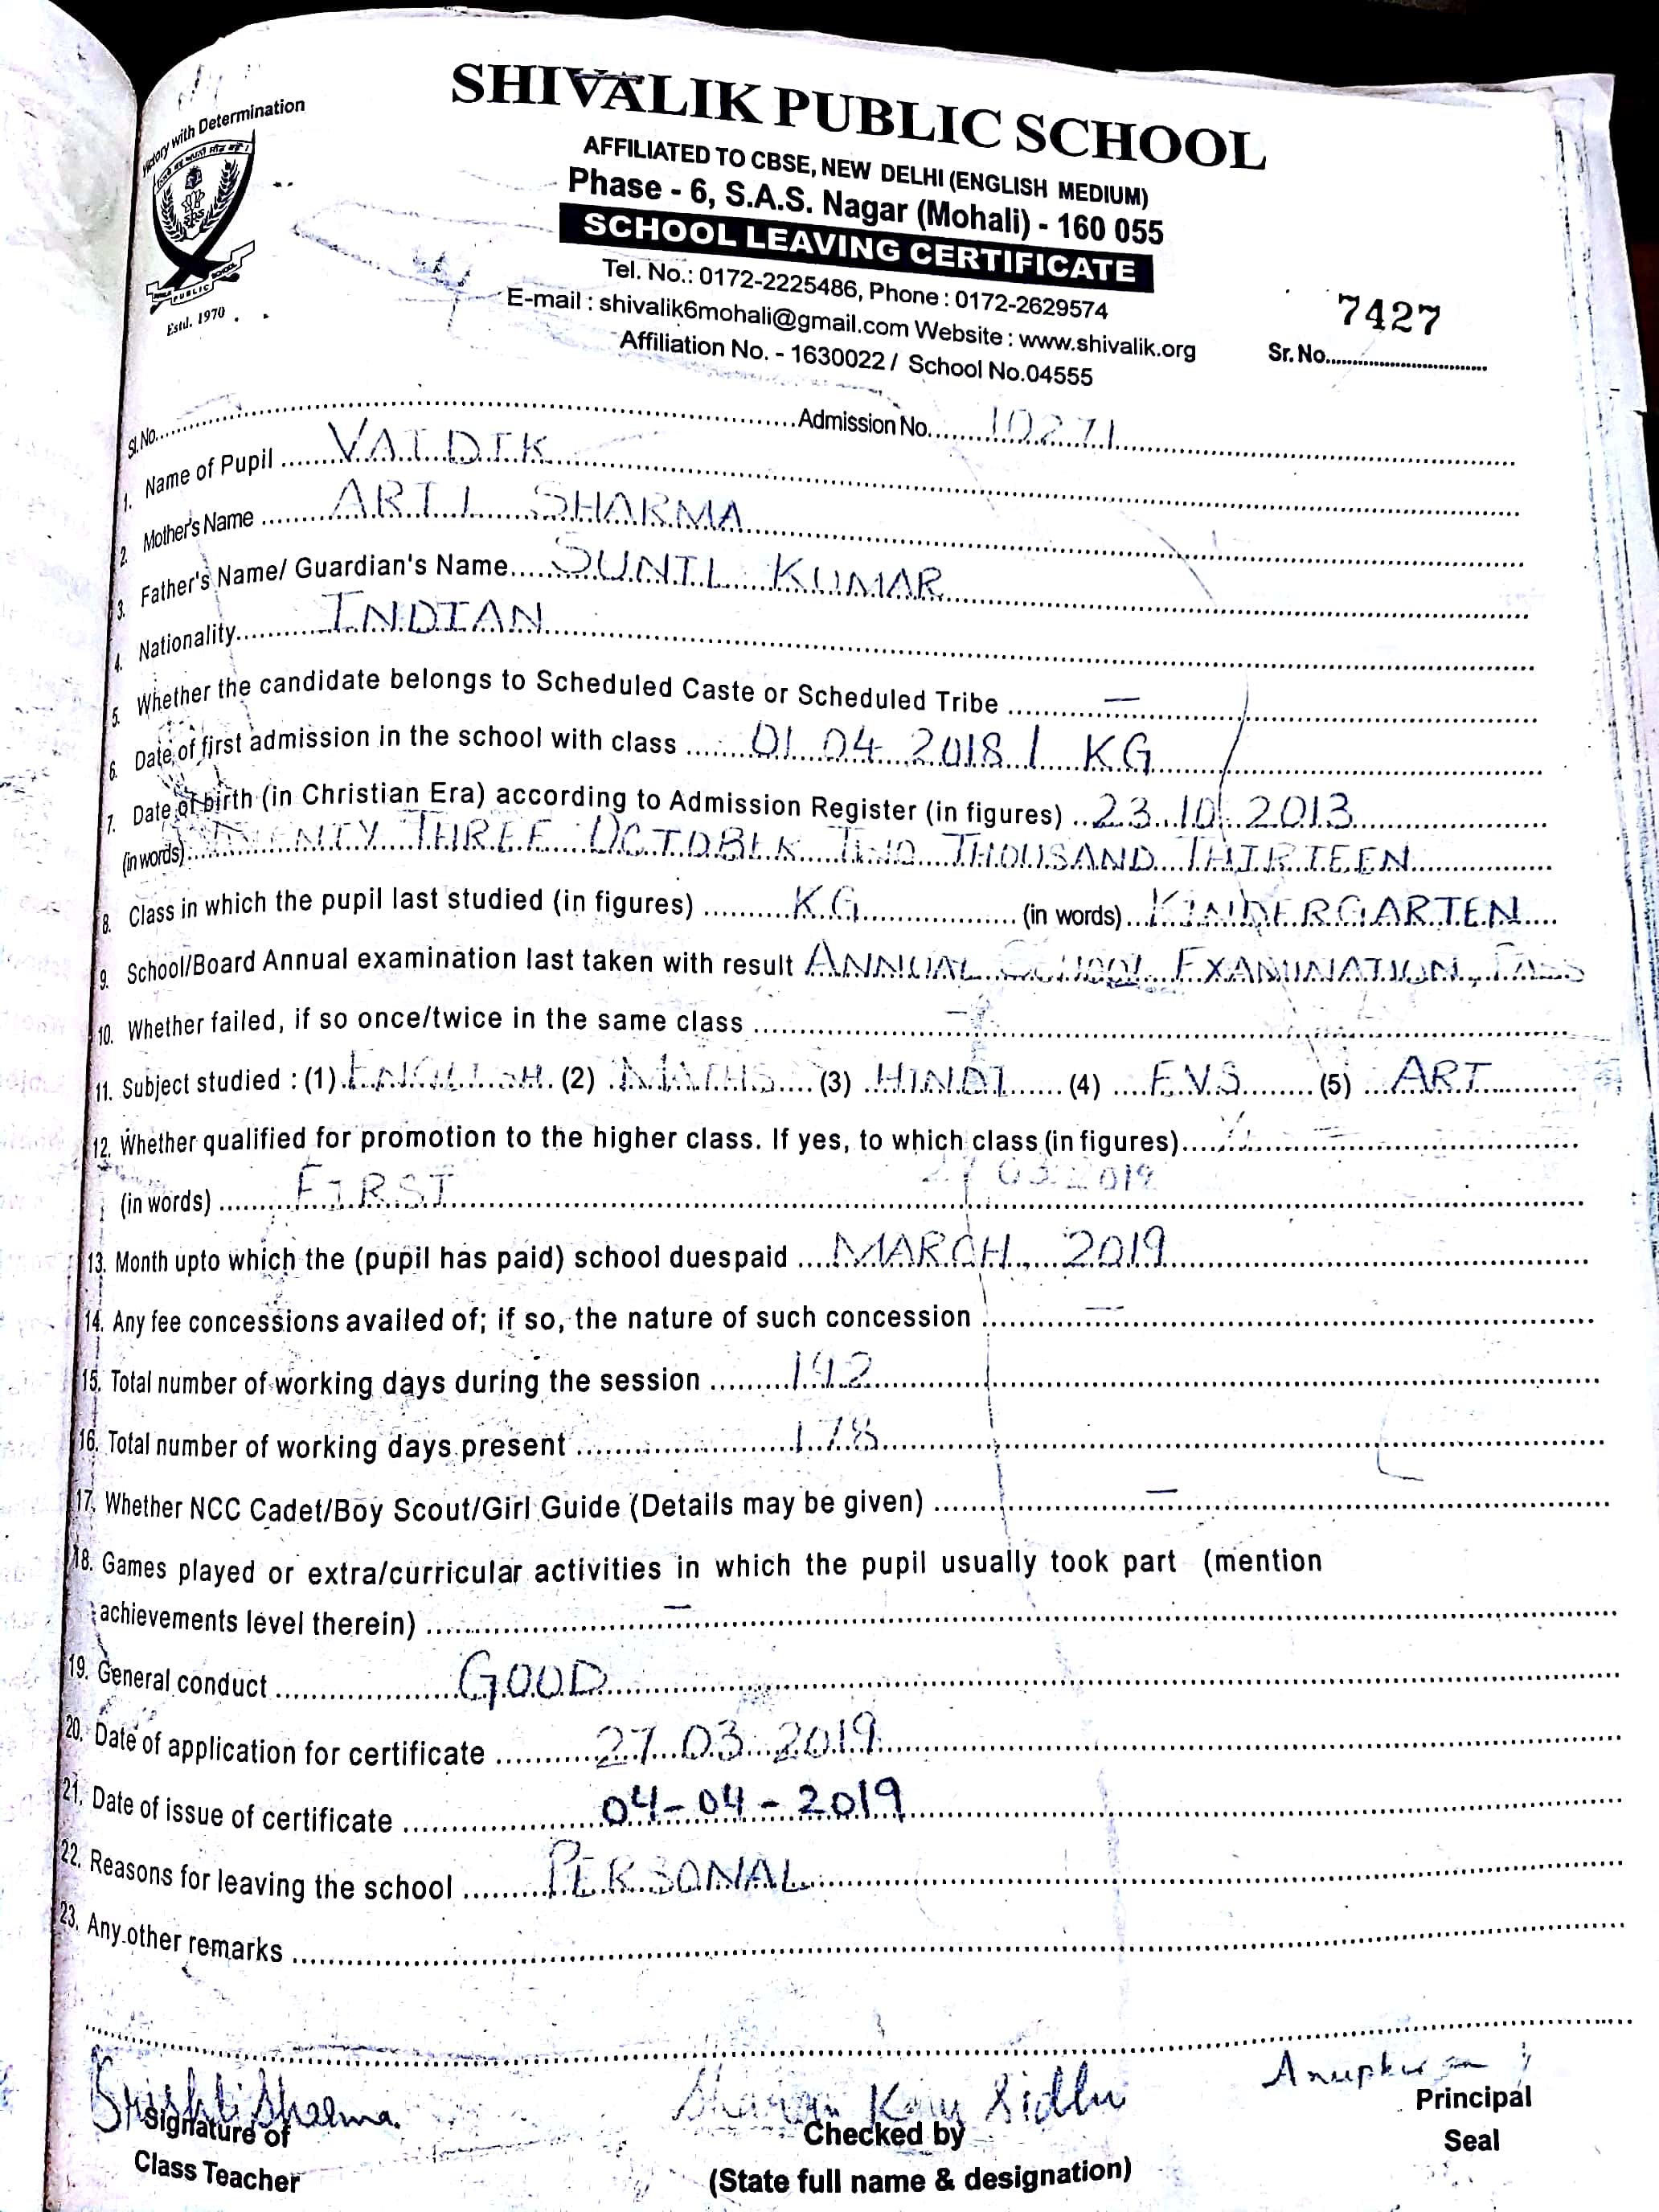 Victory with Determination
SHIVALIK PUBLIC SCHOOL
AFFILIATED TO CBSE, NEW DELHI (ENGLISH MEDIUM)
Phase - 6, S.A.S. Nagar (Mohali) - 160 055
SCHOOL LEAVING CERTIFICATE
Tel. No.: 0172-2225486, Phone : 0172-2629574
E-mail : shivalik6mohali@gmail.com Website : www.shivalik.org
Affiliation No. - 1630022 / School No.04555
SPS
PUBLIC SCHOOL
Estd. 1970
7427
Sr. No.
Sl. No. Admission No. 10271
1. Name of Pupil VAIDIK
2. Mother's Name ARTI SHARMA
3. Father's Name/ Guardian's Name SUNIL KUMAR
4. Nationality INDIAN
5. Whether the candidate belongs to Scheduled Caste or Scheduled Tribe —
6. Date of first admission in the school with class 01.04.2018 / KG
7. Date of birth (in Christian Era) according to Admission Register (in figures) 23.10.2013
(in words) TWENTY THREE OCTOBER TWO THOUSAND THIRTEEN
8. Class in which the pupil last studied (in figures) KG (in words) KINDERGARTEN
9. School/Board Annual examination last taken with result ANNUAL SCHOOL EXAMINATION, PASS
10. Whether failed, if so once/twice in the same class —
11. Subject studied : (1) ENGLISH (2) MATHS (3) HINDI (4) E.V.S (5) ART
12. Whether qualified for promotion to the higher class. If yes, to which class (in figures)
27 03 2019
(in words) FIRST
13. Month upto which the (pupil has paid) school duespaid MARCH, 2019
14. Any fee concessions availed of; if so, the nature of such concession —
15. Total number of working days during the session 192
16. Total number of working days present 178
17. Whether NCC Cadet/Boy Scout/Girl Guide (Details may be given) —
18. Games played or extra/curricular activities in which the pupil usually took part (mention
achievements level therein) —
19. General conduct GOOD
20. Date of application for certificate 27.03.2019
21. Date of issue of certificate 04-04-2019
22. Reasons for leaving the school PERSONAL
23. Any other remarks
Srishti Sharma Sidhu
Signature of Checked by Principal
Class Teacher (State full name & designation) Seal